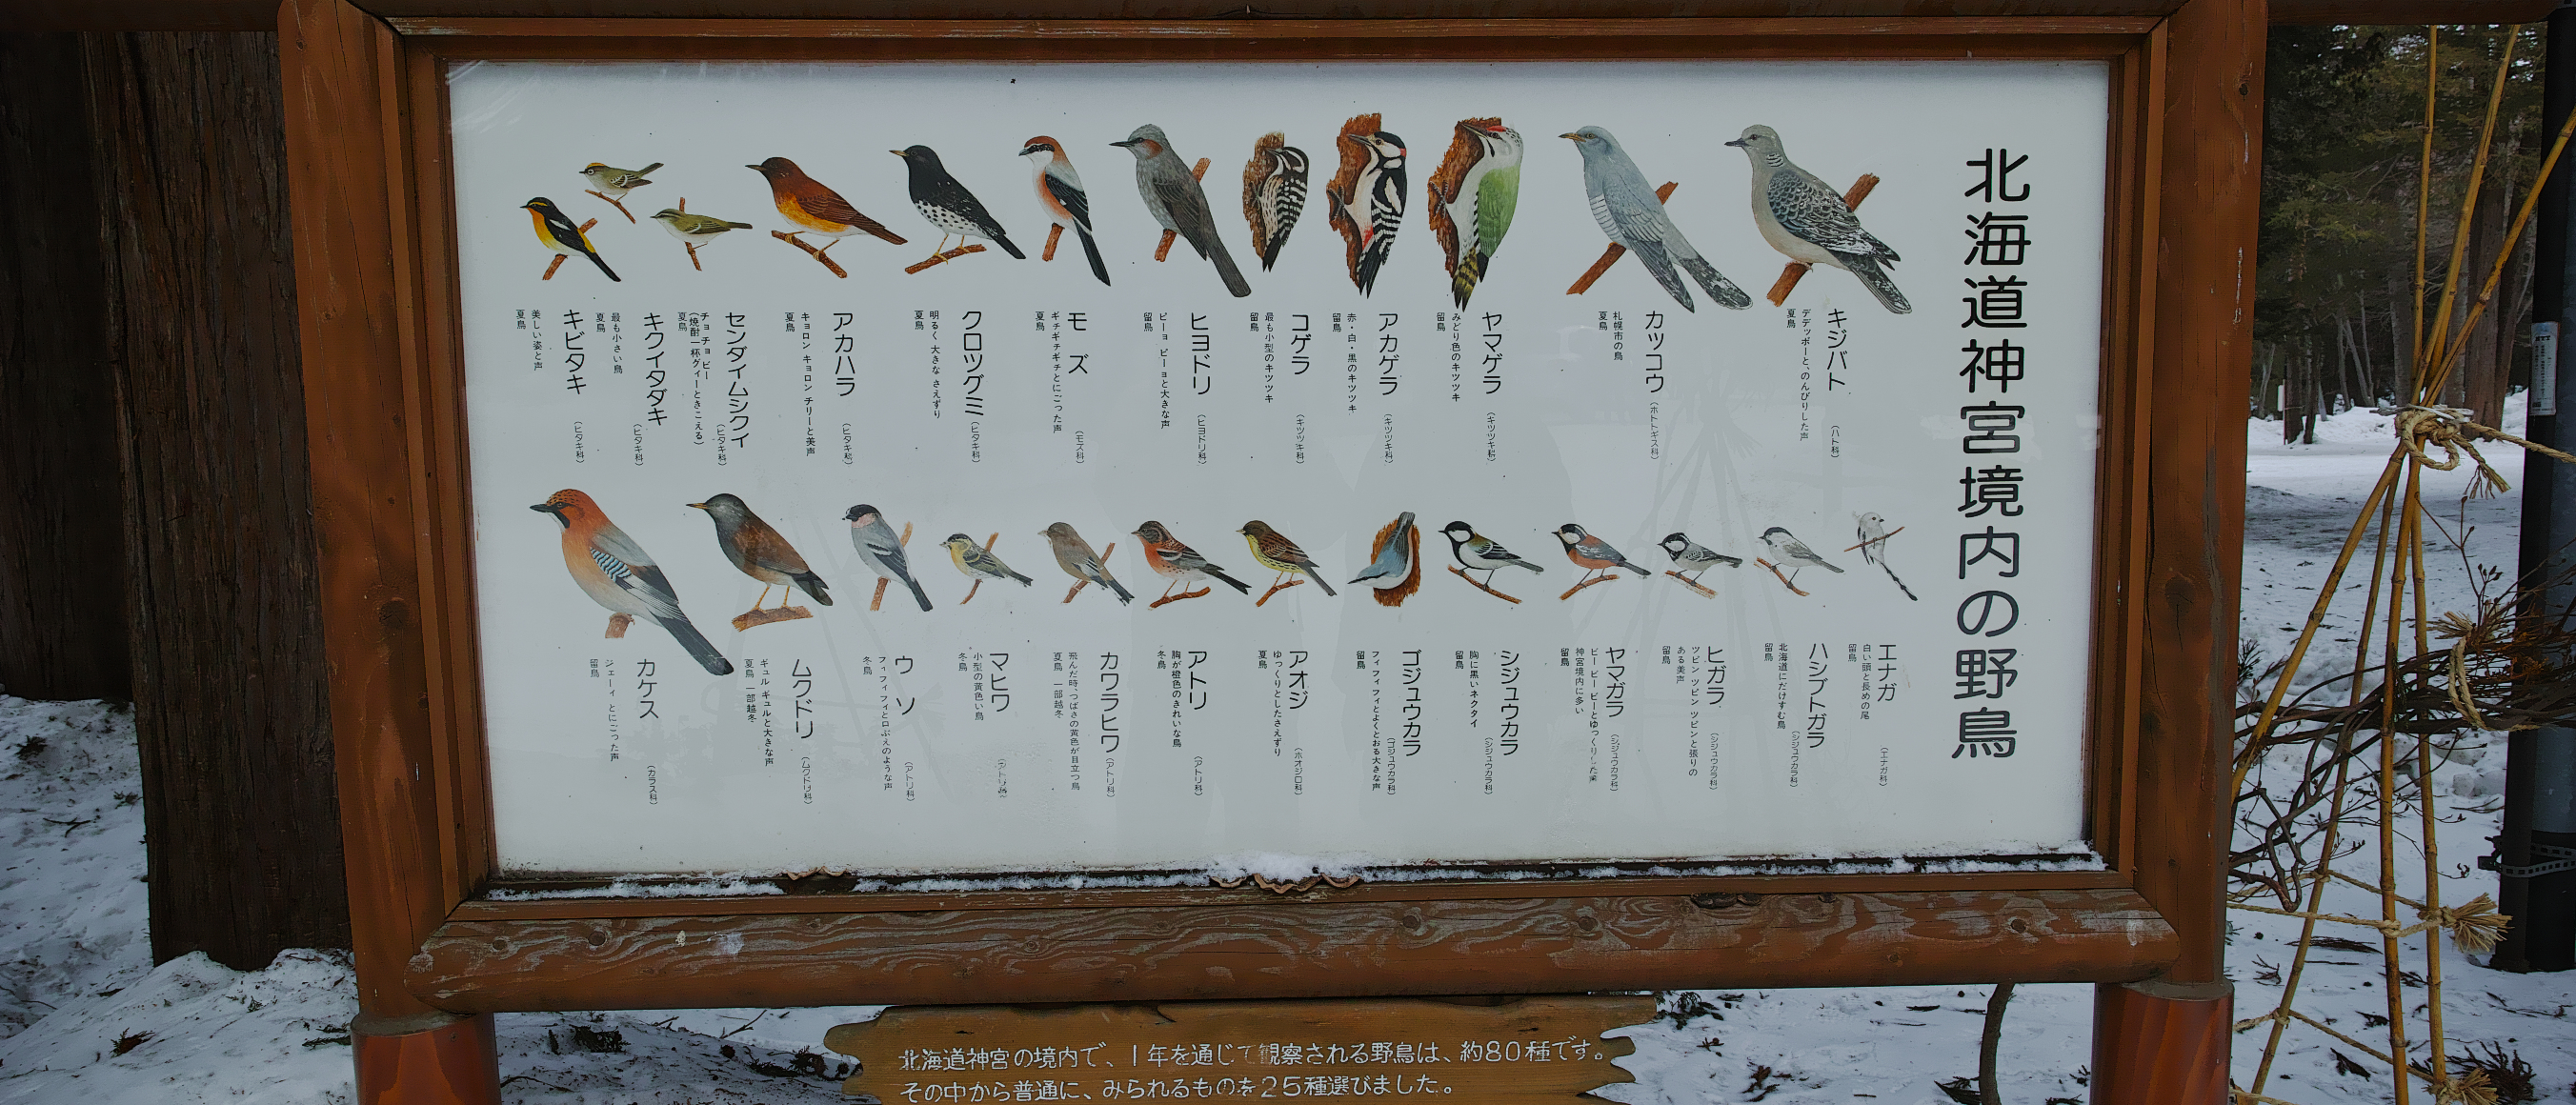 北海道神宮境内の野鳥
キジバト
(ハト科)
デデッポーと、のんびりした声
夏鳥
カッコウ
(ホトトギス科)
札幌市の鳥
夏鳥
ヤマゲラ
(キツツキ科)
みどり色のキツツキ
留鳥
アカゲラ
(キツツキ科)
赤・白・黒のキツツキ
留鳥
コゲラ
(キツツキ科)
最も小型のキツツキ
留鳥
ヒヨドリ
(ヒヨドリ科)
ピーョ ピーョと大きな声
留鳥
モズ
(モズ科)
ギチギチギチとにごった声
夏鳥
クロツグミ
(ヒタキ科)
明るく 大きな さえずり
夏鳥
アカハラ
(ヒタキ科)
キョロン キョロン チリーと美声
夏鳥
センダイムシクイ
(ヒタキ科)
チョチョ ビー
(焼酎一杯グィーときこえる)
夏鳥
キクイタダキ
(ヒタキ科)
最も小さい鳥
夏鳥
キビタキ
(ヒタキ科)
美しい姿と声
夏鳥
エナガ
(エナガ科)
白い頭と長めの尾
留鳥
ハシブトガラ
(シジュウカラ科)
北海道にだけすむ鳥
留鳥
ヒガラ
(シジュウカラ科)
ツピン ツピン ツピンと張りの
ある美声
留鳥
ヤマガラ
(シジュウカラ科)
ビービービーとゆっくりした声
神宮境内に多い
留鳥
シジュウカラ
(シジュウカラ科)
胸に黒いネクタイ
留鳥
ゴジュウカラ
(ゴジュウカラ科)
フィフィフィとよくとおる大きな声
留鳥
アオジ
(ホオジロ科)
ゆっくりとしたさえずり
夏鳥
アトリ
(アトリ科)
胸が橙色のきれいな鳥
冬鳥
カワラヒワ
(アトリ科)
飛んだ時、つばさの黄色が目立つ鳥
夏鳥 一部越冬
マヒワ
(アトリ科)
小型の黄色い鳥
冬鳥
ウソ
(アトリ科)
フィフィフィと口ぶえのような声
冬鳥
ムクドリ
(ムクドリ科)
ギュル ギュルと大きな声
夏鳥 一部越冬
カケス
(カラス科)
ジェーィ とにごった声
留鳥
北海道神宮の境内で、1年を通じて観察される野鳥は、約80種です。
その中から普通に、みられるものを25種選びました。